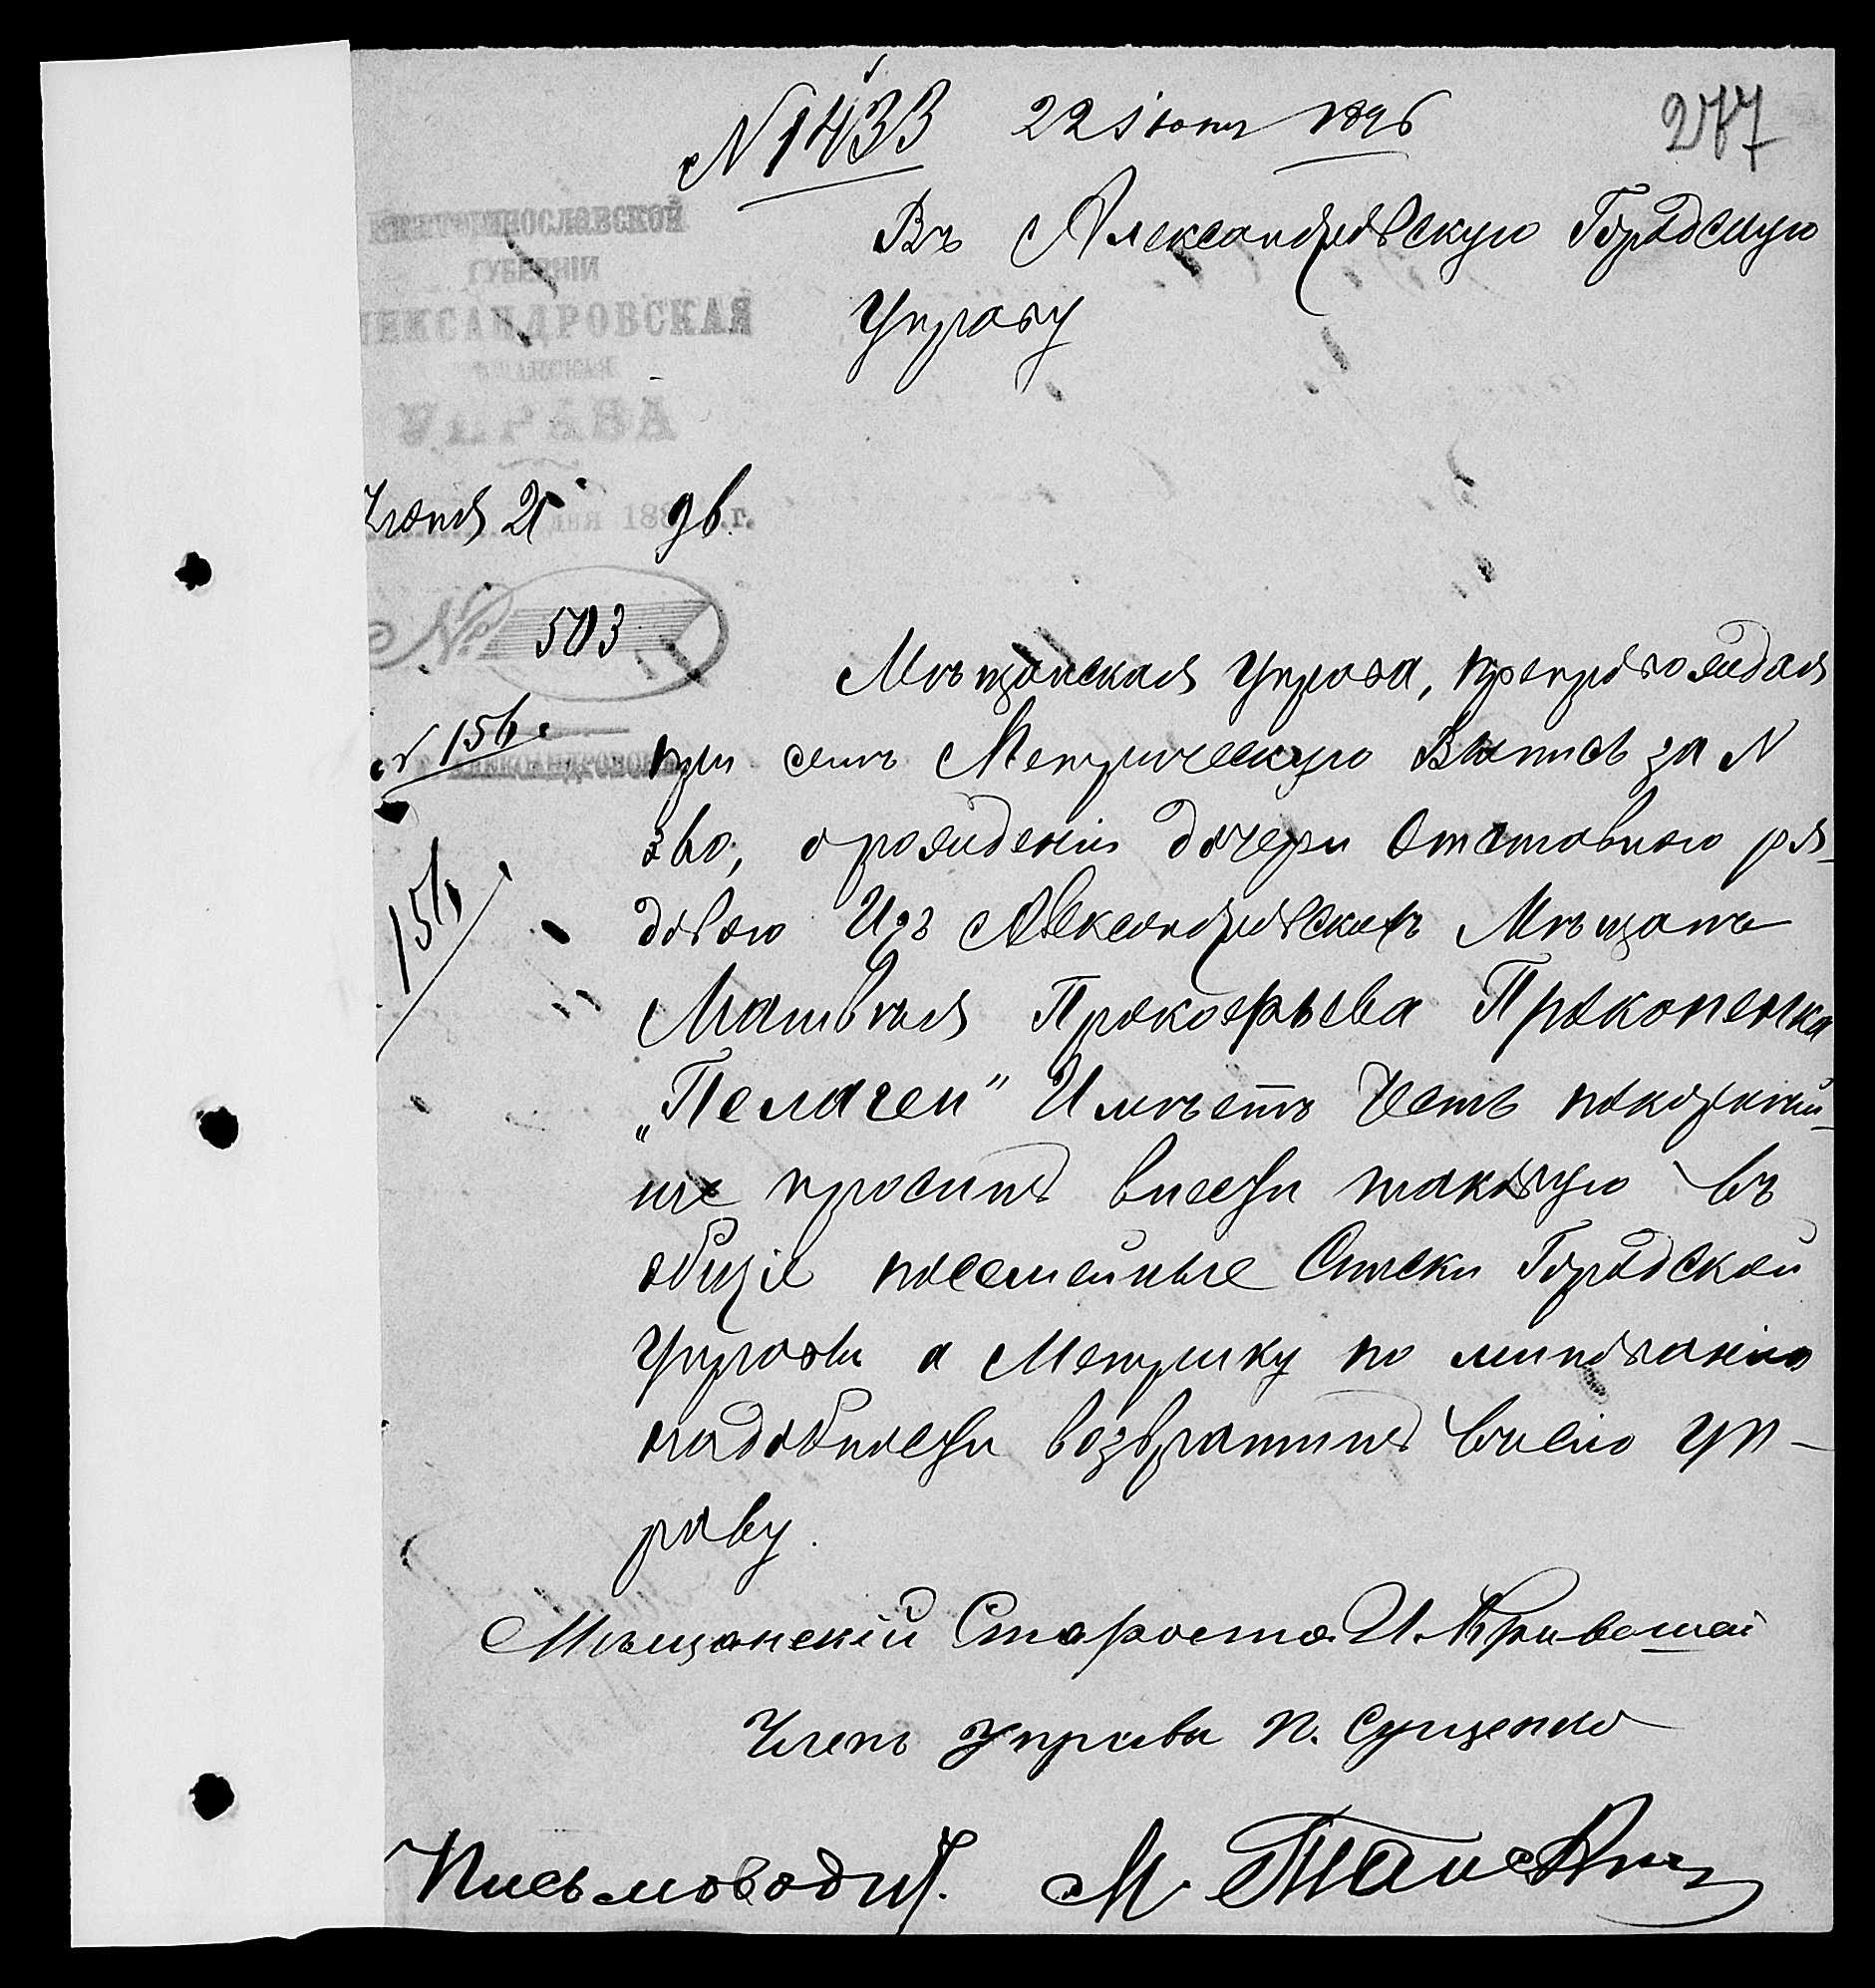 № 1433 22 Іюня 1896
277
Въ Александровскую Городскую
Управу
ЕКАТЕРИНОСЛАВСКОЙ
ГУБЕРНІИ
АЛЕКСАНДРОВСКАЯ
МѢЩАНСКАЯ
УПРАВА
Іюня 21 дня 188 96 .г.
№ 503
№ 156
АЛЕКСАНДРОВСКЪ
156
Мѣщанская Управа, препровождая
при семъ Метрическую Выпись за N
360, о рожденіи дочери Отставного ря-
дового Изъ Александровскихъ Мѣщанъ
Матвѣя Прокофьева Прокопенка
„Пелагеи" Имѣетъ Честь покорнѣй-
ше просить внести таковую въ
общіе посемейные Списки Городской
Управы а Метрику по минованію
надобности возвратить въ сію Уп-
раву.
Мѣщанскій Староста И. Кривошей
Членъ Управы П. Сущенко
Письмоводит. М.